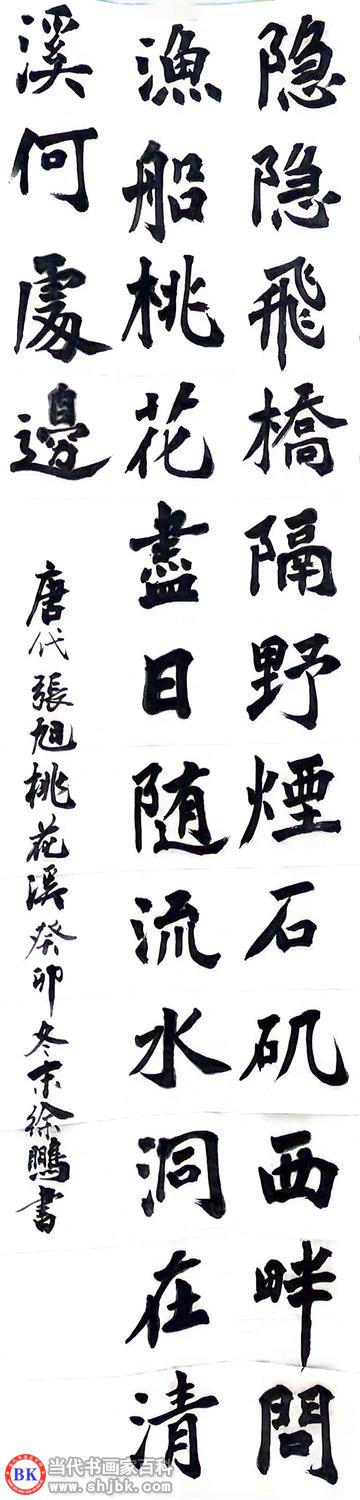 隐隐飛橋隔野煙石矶西畔問
漁船桃花盡日随流水洞在清
溪何處邊
唐代張旭桃花溪癸卯冬末徐鵬書
BK
当代书画家百科
www.shjbk.com